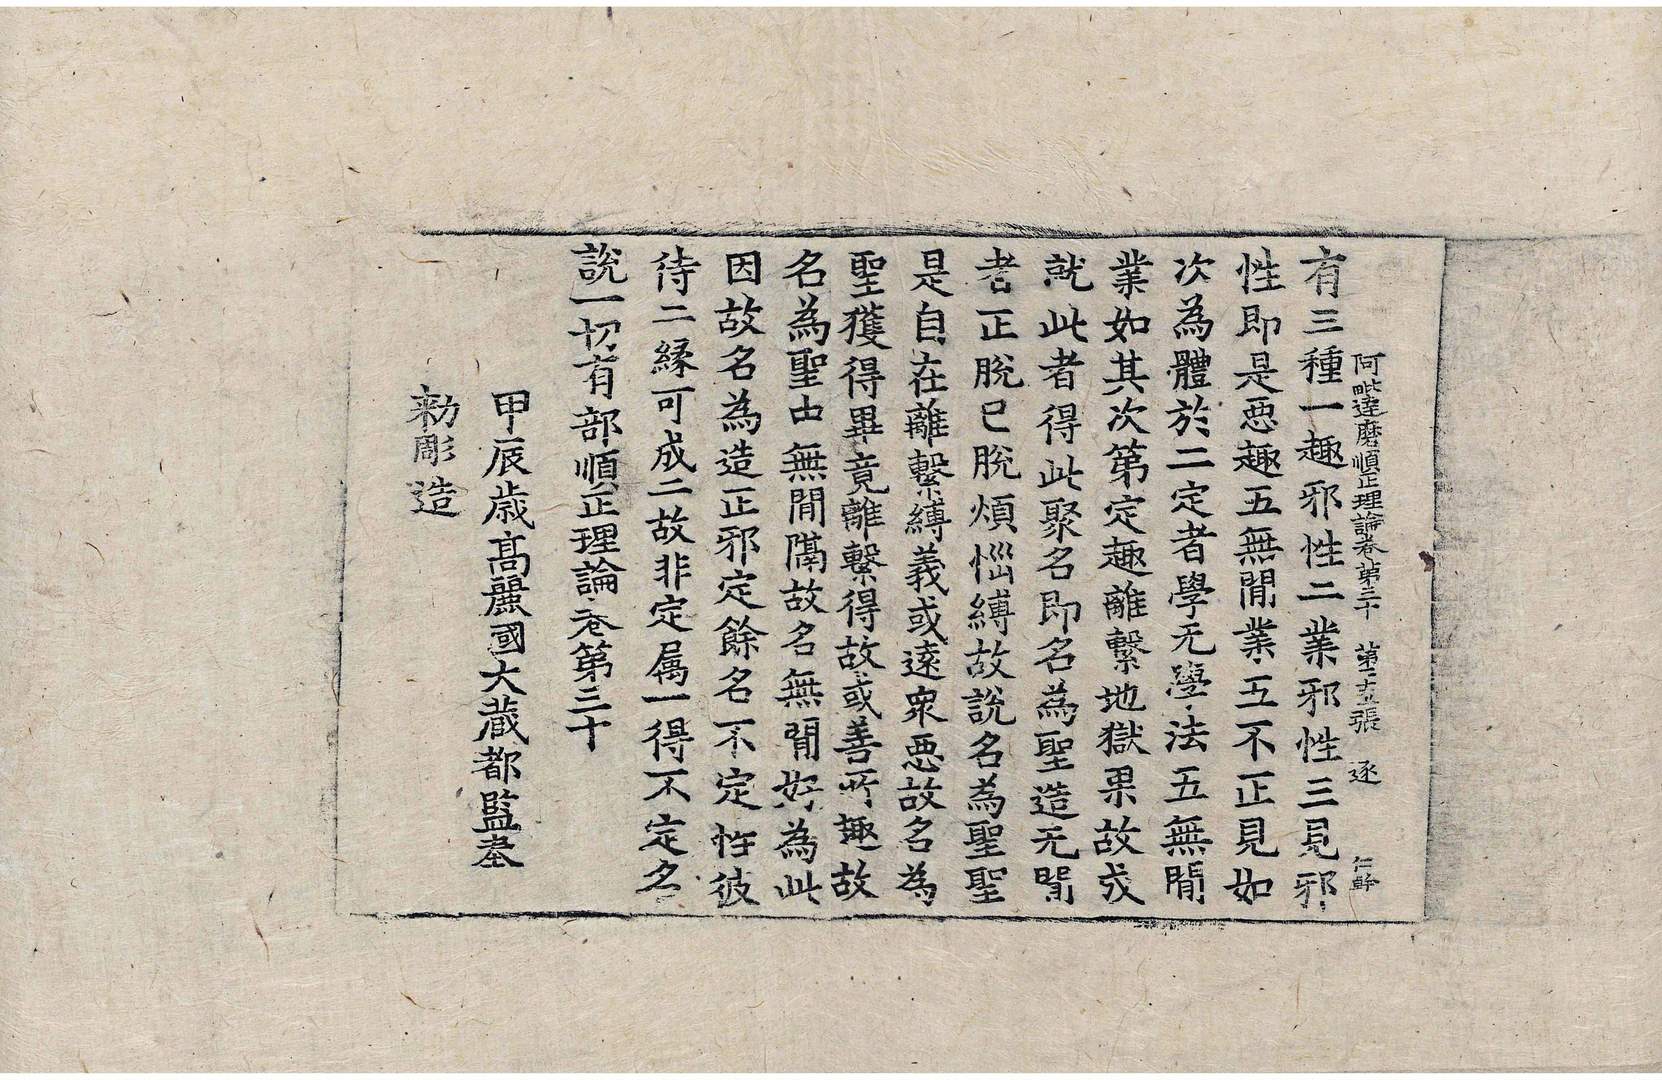 阿毗達磨順正理論卷第三十 第二十五張 逐 仁幹
有三種一趣邪性二業邪性三見邪
性即是惡趣五無閒業五不正見如
次為體於二定者學无學法五無閒
業如其次第定趣離繫地獄果故成
就此者得此聚名即名為聖造无閒
者正脫已脫煩惱縛故說名為聖聖
是自在離繫縛義或遠衆惡故名為
聖獲得畢竟離繫得故或善所趣故
名為聖由無閒隔故名無閒好為此
因故名為造正邪定餘名不定性彼
待二緣可成二故非定屬一得不定名
說一切有部順正理論卷第三十
甲辰歲高麗國大藏都監奉
勑彫造